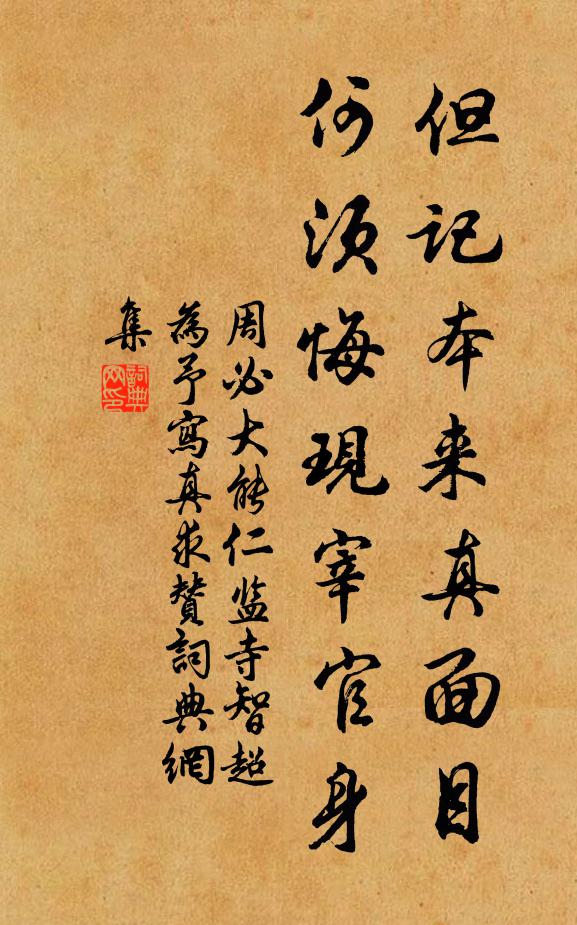 但记本来真面目
何须悔現宰官身
周必大能仁监寺智超
為予寫真求賛詞典網
集
詞典
网印